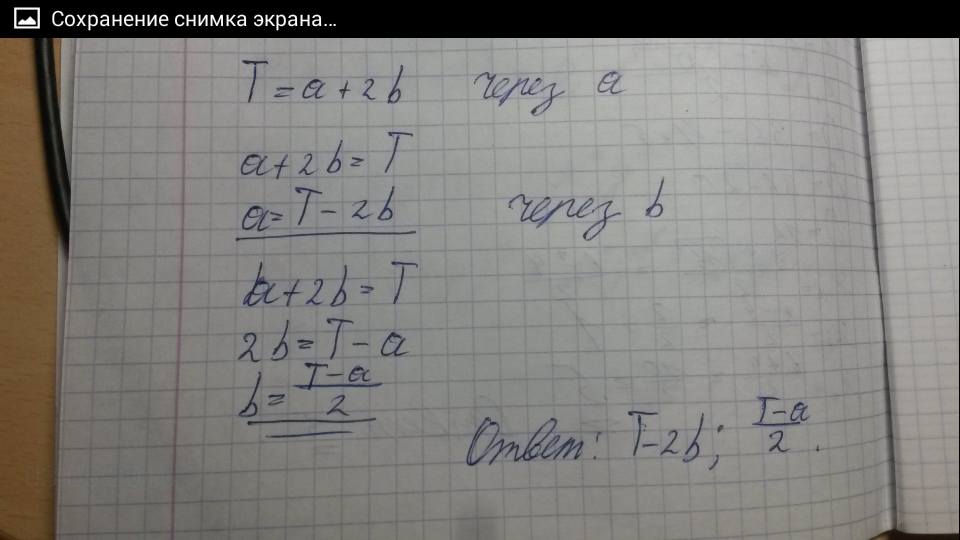 Сохранение снимка экрана...
T=a+2b через a
a+2b=T
a=T-2b через b
a+2b=T
2b=T-a
b=\frac{T-a}{2}
Ответ: T-2b; \frac{T-a}{2}.